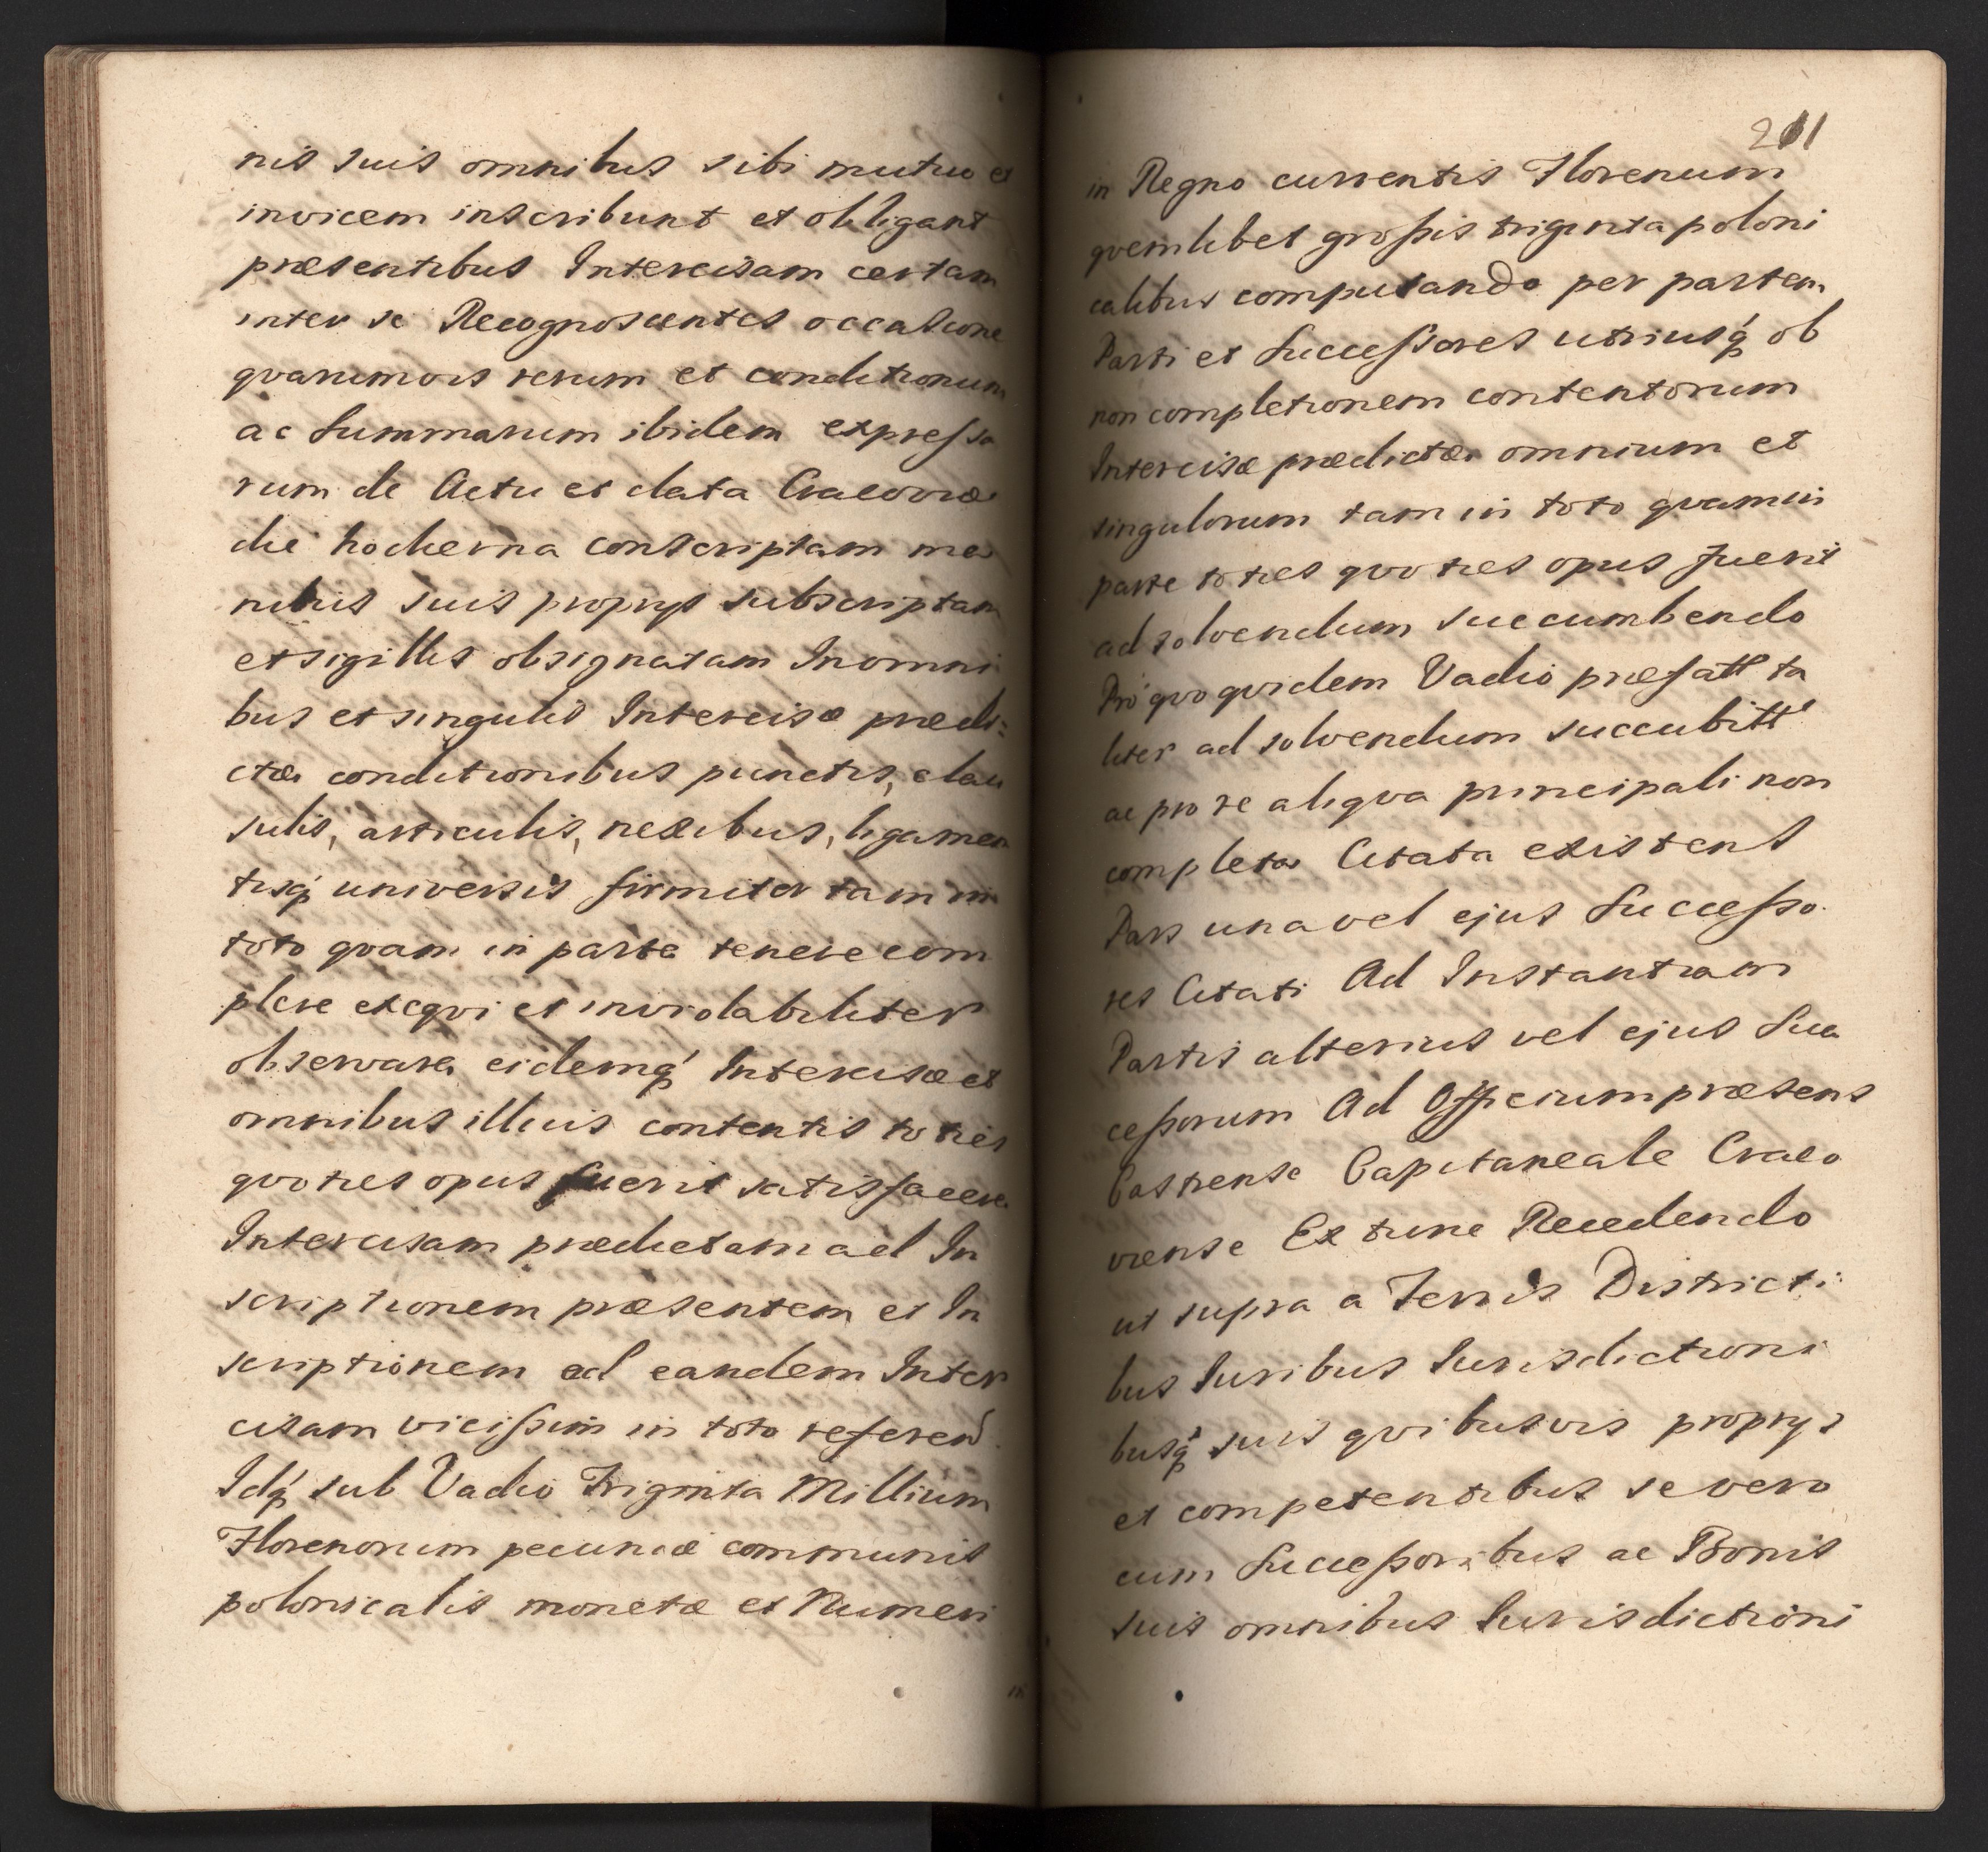 nis suis omnibus sibi mutuo et
invicem inscribunt et obligant
præsentibus Intercisam certam
inter se Recognoscentes occasione
qvarumvis rerum et conditionum
ac Summarum ibidem expressa
rum de Actu et data Cracoviæ
die hodierna conscriptam ma
nibus suis proprys subscriptam
et sigillis obsignatam In omni
bus et singulis Intercisæ prædi=
ctæ conditionibus punctis, clau
sulis, articulis, nexibus, ligamen
tisq́ universis firmiter tam in
toto qvam in parte tenere com
plere exeqvi et inviolabiliter
observare eidemq́ Intercisæ et
omnibus illius contentis toties
qvoties opus fuerit satisfacere
Intercisam prædictam ad In
scriptionem præsentem et In
scriptionem ad eandem Inter
cisam vicissim in toto referend
Idq́ sub Vadio Triginta Millium
Florenorum pecuniæ communis
polonicalis monetæ et Numeri
211
in Regno currentis Florenum
qvemlibet grossis triginta poloni
calibus computando per partem
Parti et Successores utriusq́ ob
non completionem contentorum
Intercisæ prædictæ omnium et
singulorum tam in toto qvam in
parte toties qvoties opus fuerit
ad solvendum succumbendo
Pro qvo qvidem Vadio præfatt ta
liter ad solvendum succubitt
ac pro re aliqva principali non
completa Citata existens
Pars una vel ejus Successo
res Citati Ad Instantiam
Partis alterius vel ejus Suc
cessorum Ad Officium præsens
Castrense Capitaneale Craco
viense Ex tunc Recedendo
ut supra a Terris Districti
bus Iuribus Iurisdictioni
busq́ suis qvibusvis proprys
et competentibus se vero
cum Successoribus ac Bonis
suis omnibus Iurisdictioni